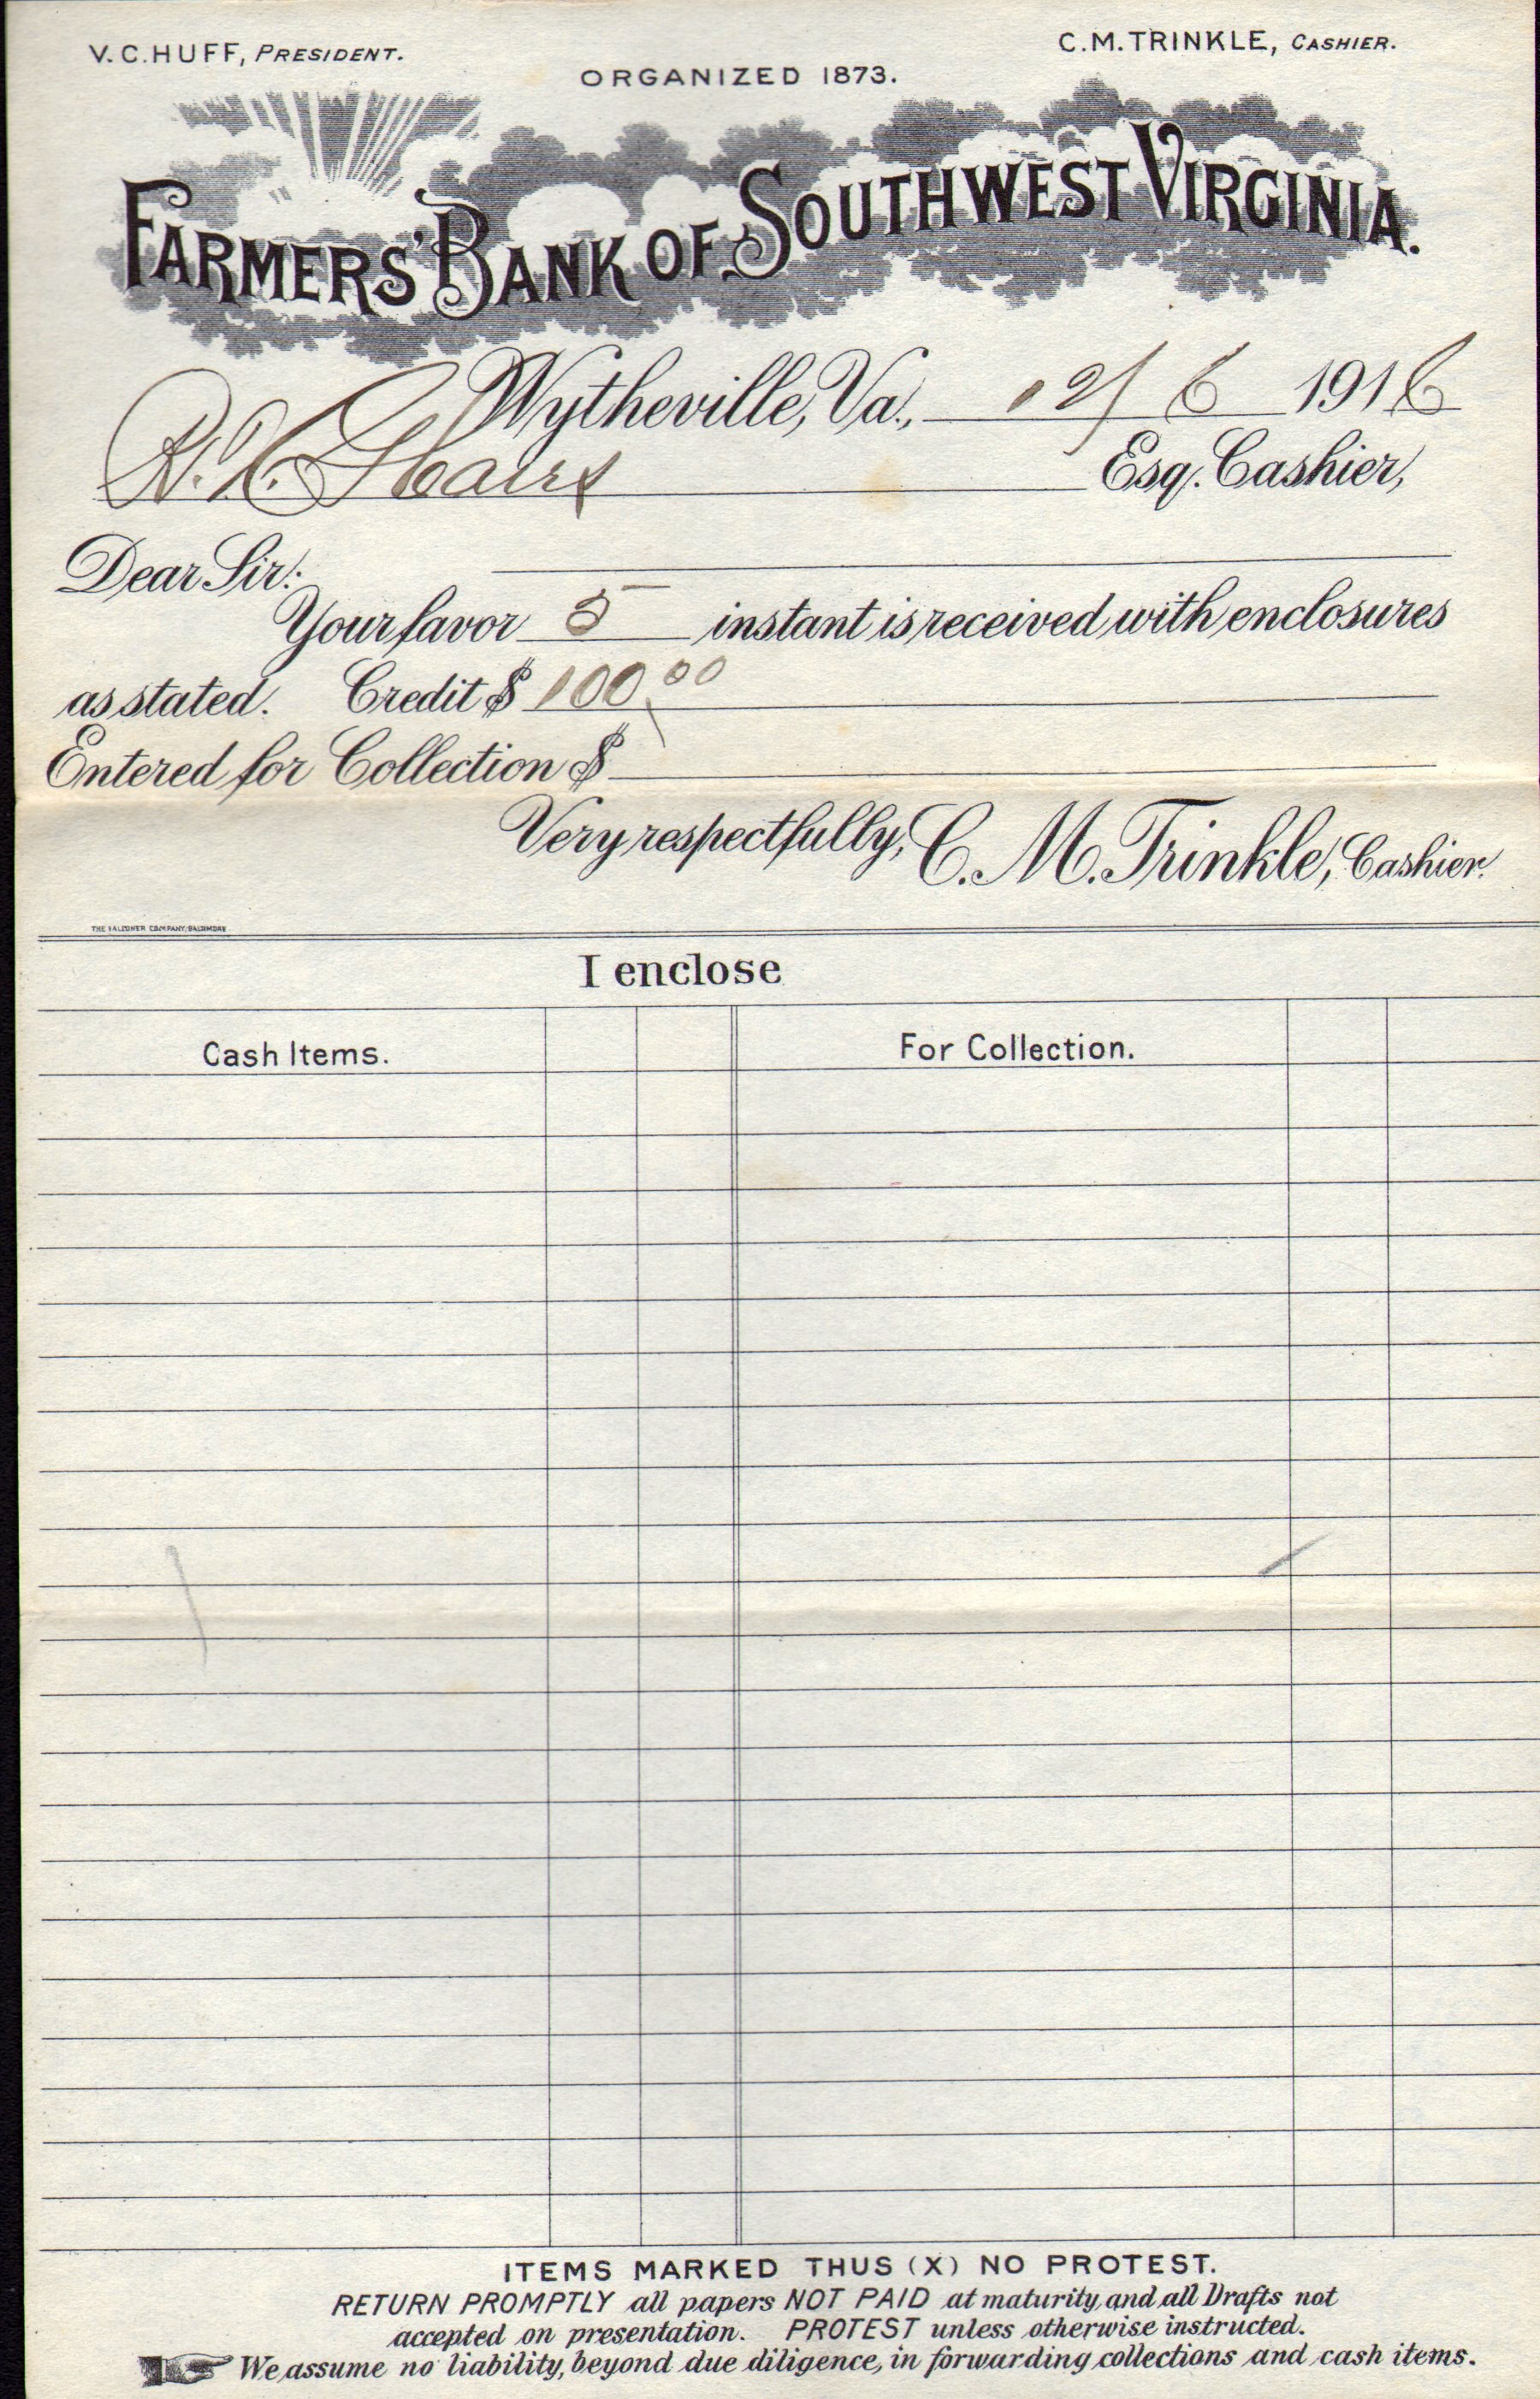 V. C. HUFF, PRESIDENT.
C. M. TRINKLE, CASHIER.
ORGANIZED 1873.
FARMERS' BANK OF SOUTHWEST VIRGINIA.
Wytheville, Va., 12/6 1916
Esq. Cashier,
Dear Sir:
Your favor 5 instant is received with enclosures
as stated. Credit $ 100.00
Entered for Collection $
Very respectfully, C. M. Trinkle, Cashier.
THE FALCONER COMPANY, BALTIMORE
I enclose
Cash Items. For Collection.
ITEMS MARKED THUS (X) NO PROTEST.
RETURN PROMPTLY all papers NOT PAID at maturity, and all Drafts not
accepted on presentation. PROTEST unless otherwise instructed.
We assume no liability, beyond due diligence, in forwarding collections and cash items.